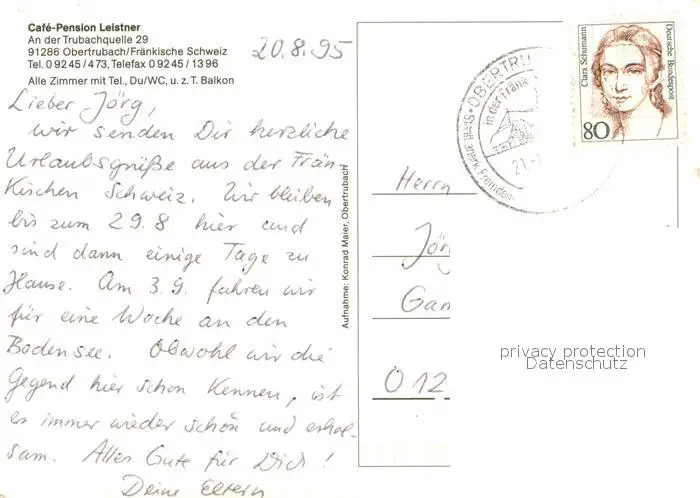 Café-Pension Leistner
An der Trubachquelle 29
91286 Obertrubach/Fränkische Schweiz
Tel. 0 92 45 / 473, Telefax 0 92 45 / 13 96
Alle Zimmer mit Tel., Du/WC, u. z. T. Balkon
20.8.95
Lieber Jörg,
wir senden Dir herzliche
Urlaubsgrüße aus der Frän-
kischen Schweiz. Wir bleiben
bis zum 29.8. hier und
sind dann einige Tage zu
Hause. Am 3.9. fahren wir
für eine Woche an den
Bodensee. Obwohl wir die
Gegend hier schon kennen, ist
es immer wieder schön und erhol-
sam. Alles Gute für Dich!
Deine Eltern
Aufnahme: Konrad Maier, Obertrubach
OBERTRU
in der Fränk
21.
Clara Schumann
Deutsche Bundespost
80
Herrn
Jörg
Gan
O 12
privacy protection
Datenschutz